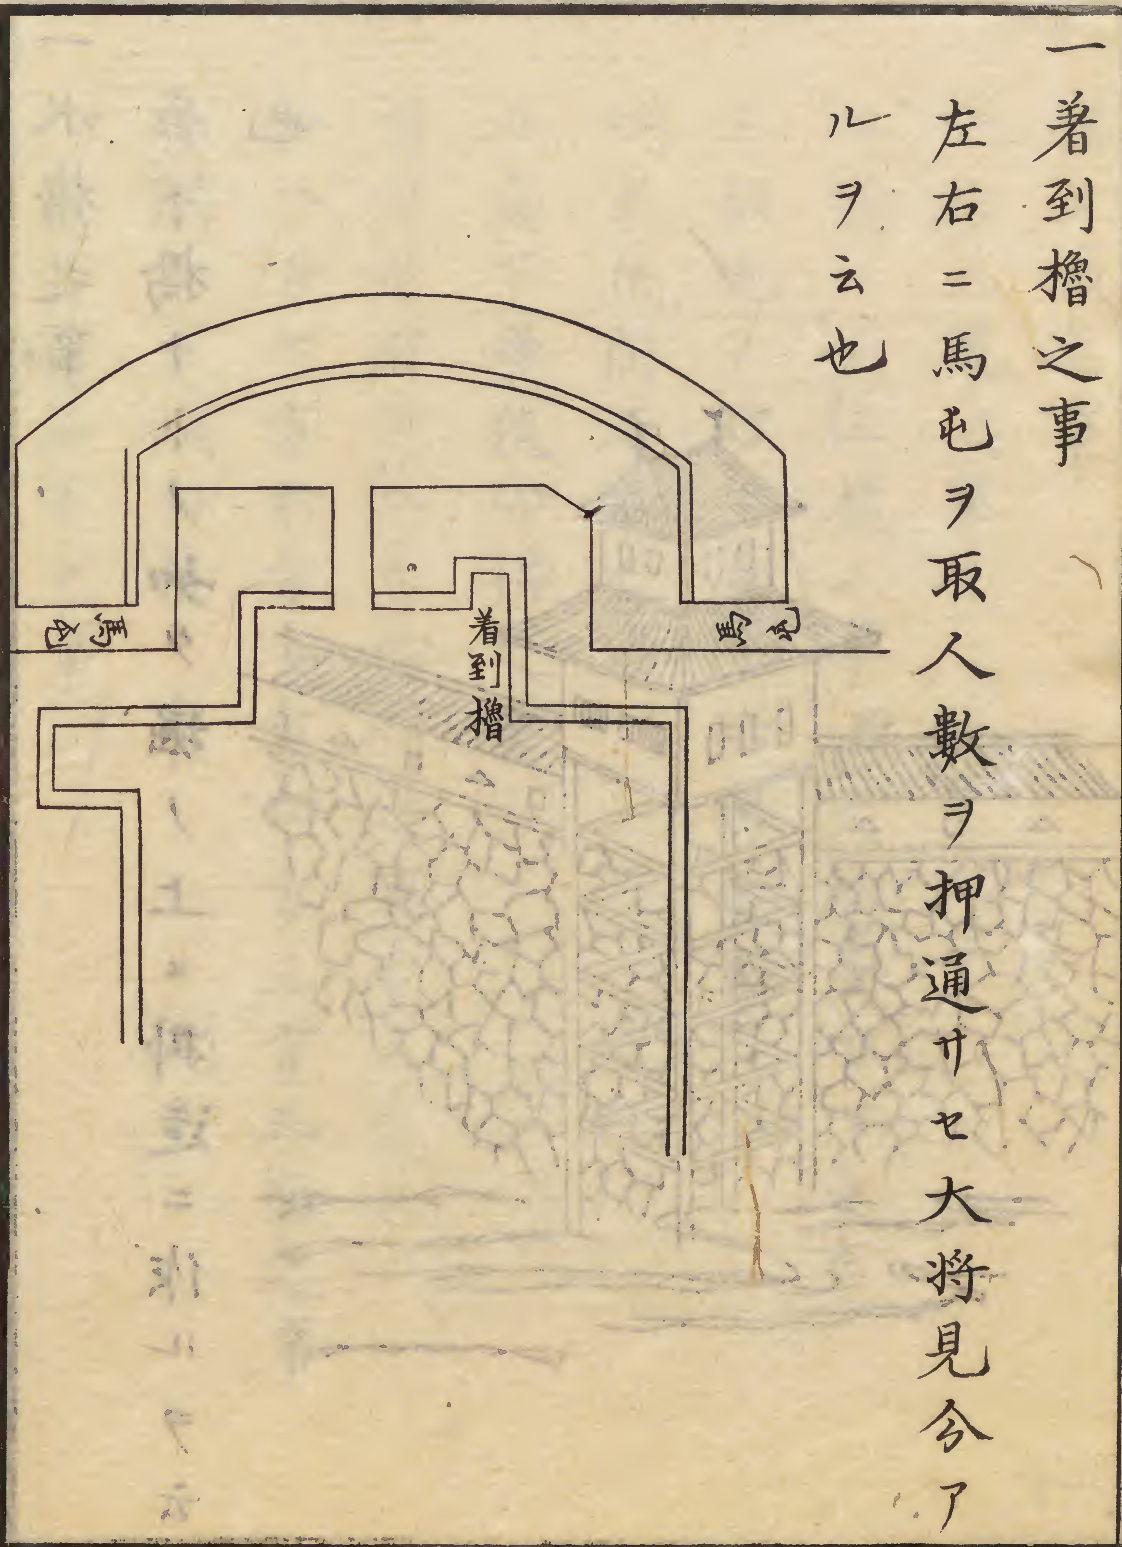 一着到櫓之事
左右ニ馬屯ヲ取人數ヲ押通サセ大将見分ア
ルヲ云也
馬屯
着到櫓
馬屯